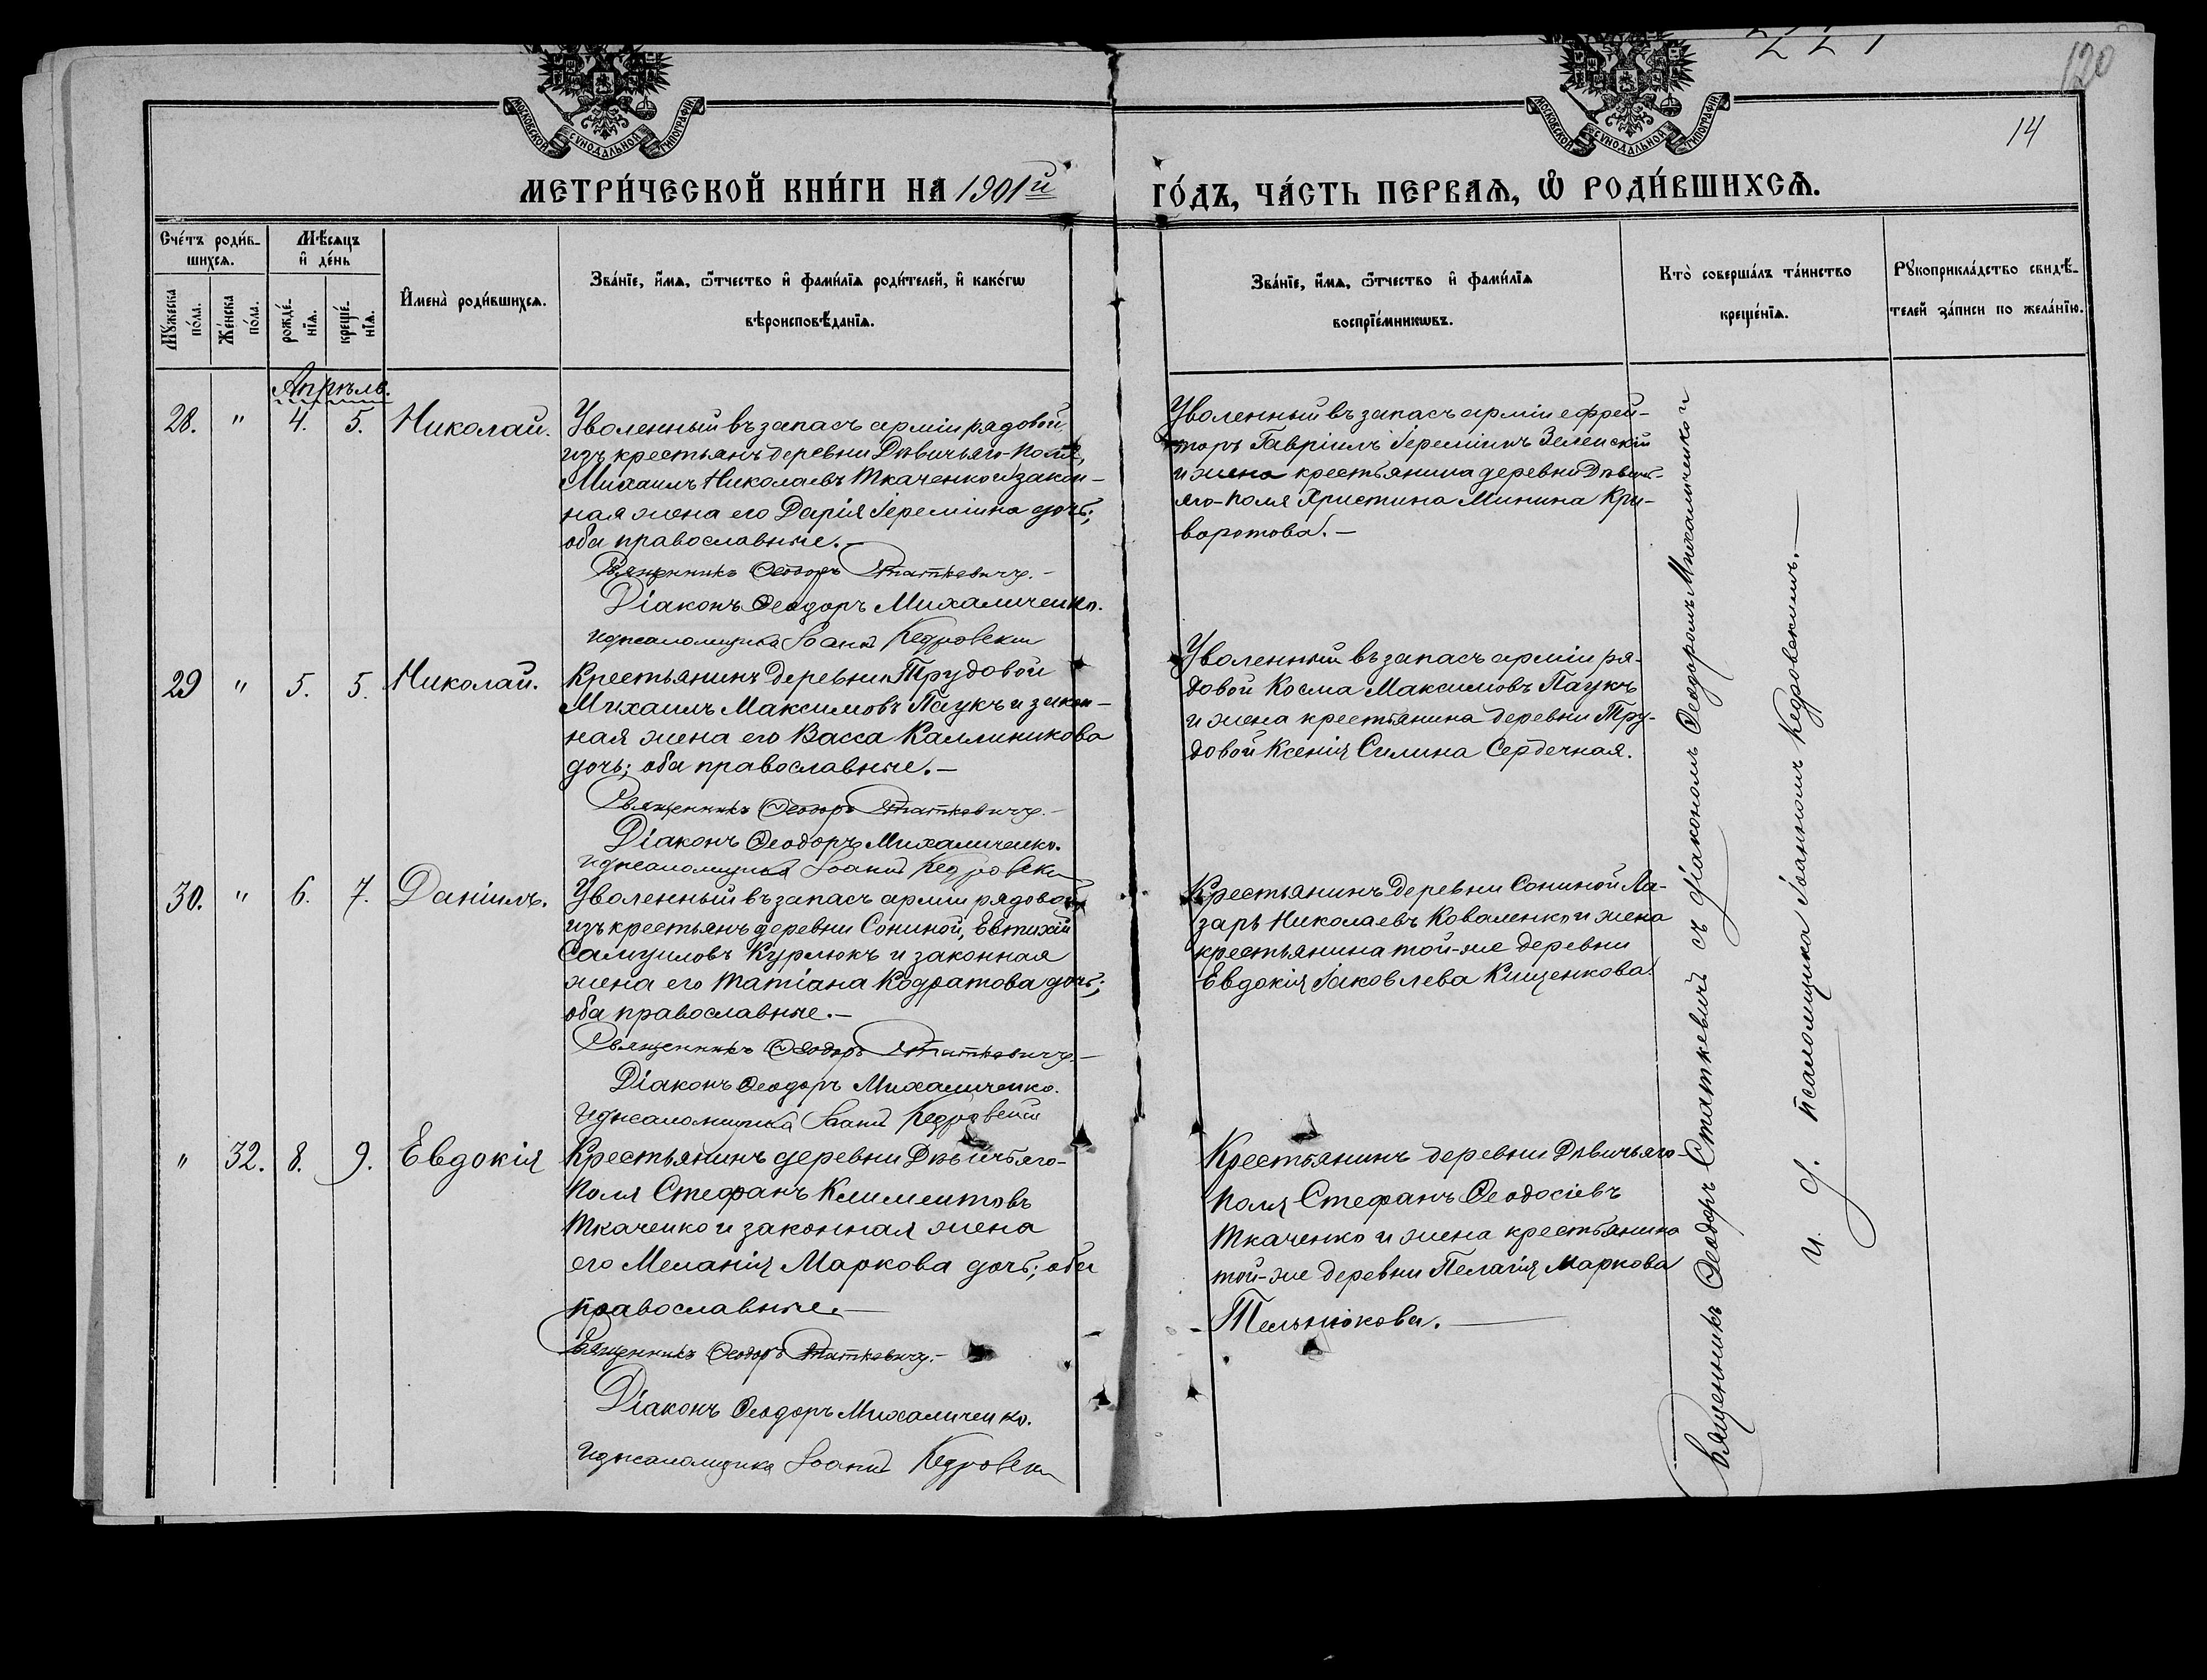 МОСКОВСКОЙ СѴНОДАЛЬНОЙ ТИПОГРАФІИ
МОСКОВСКОЙ СѴНОДАЛЬНОЙ ТИПОГРАФІИ
120
14
МЕТРИ́ЧЕСКОЙ КНИ́ГИ НА 1901й
ГО́ДЪ, ЧА́СТЬ ПЕРВАѦ, Ѡ҆ РОДИ́ВШИХСѦ.
Сче́тъ роди́в-
шихсѧ.
Мѣ́сѧцъ
и҆ де́нь
Мꙋжеска
по́ла.
Же́нска
по́ла.
рожде́-
нїѧ.
креще́-
нїѧ.
И҆мена̀ роди́вшихсѧ.
Зва́нїе, и҆́мѧ, ѻ҆́тчество и҆ фами́лїѧ роди́телей, и҆ како́гѡ
вѣроисповѣ́данїѧ.
Зва́нїе, и҆́мѧ, ѻ҆́тчество и҆ фами́лїѧ
воспрїе́мникѡвъ.
Кто̀ соверша́лъ та́инство
креще́нїѧ.
Рꙋкоприкла́дство свидѣ́-
телей за́писи по жела́нїю.
Апрѣль.
28. " 4. 5. Николай.
Уволенный въ запасъ арміи рядовой
изъ крестьянъ деревни Дѣвичьяго-поля,
Михаилъ Николаевъ Ткаченко и закон-
ная жена его Дарія Іереміина дочь;
оба православные.—
Священникъ Ѳеодоръ Статкевичъ.—
Діаконъ Ѳеодоръ Михаличенко.
и д псаломщика Іоаннъ Кедровскій
Уволенный въ запасъ арміи ефрей-
торъ Гавріилъ Іереміинъ Зеленскій
и жена крестьянина деревни Дѣвичь-
яго-поля Христина Минина Кри-
воротова.—
29 " 5. 5. Николай.
Крестьянинъ деревни Трудовой
Михаилъ Максимовъ Паукъ и закон-
ная жена его Васса Каллиникова
дочь; оба православные.—
Священникъ Ѳеодоръ Статкевичъ.—
Діаконъ Ѳеодоръ Михаличенко.
и д псаломщика Іоаннъ Кедровскій
Уволенный въ запасъ арміи ря-
довой Косма Максимовъ Паукъ
и жена крестьянина деревни Тру-
довой Ксенія Силина Сердечная.
30. " 6. 7. Даніилъ.
Уволенный въ запасъ арміи рядовой
изъ крестьянъ деревни Сониной, Евтихій
Самуиловъ Курлюкъ и законная
жена его Татіана Кодратова дочь;
оба православные.—
Священникъ Ѳеодоръ Статкевичъ.—
Діаконъ Ѳеодоръ Михаличенко.
и д псаломщика Іоаннъ Кедровскій
Крестьянинъ деревни Сониной Ла-
зарь Николаевъ Коваленко и жена
крестьянина той-же деревни
Евдокія Іаковлева Кищенкова.
" 32. 8. 9. Евдокія
Крестьянинъ деревни Дѣвичьяго-
поля Стефанъ Климентовъ
Ткаченко и законная жена
его Меланія Маркова дочь; оба
православные.—
Священникъ Ѳеодоръ Статкевичъ.—
Діаконъ Ѳеодоръ Михаличенко.
и д псаломщика Іоаннъ Кедровскій
Крестьянинъ деревни Дѣвичьяго-
поля Стефанъ Ѳеодосіевъ
Ткаченко и жена крестьянина
той-же деревни Пелагія Маркова
Тельнюкова.—
Священникъ Ѳеодоръ Статкевичъ съ діакономъ Ѳеодоромъ Михаличенко и
и. д. псаломщика Іоанномъ Кедровскимъ.—